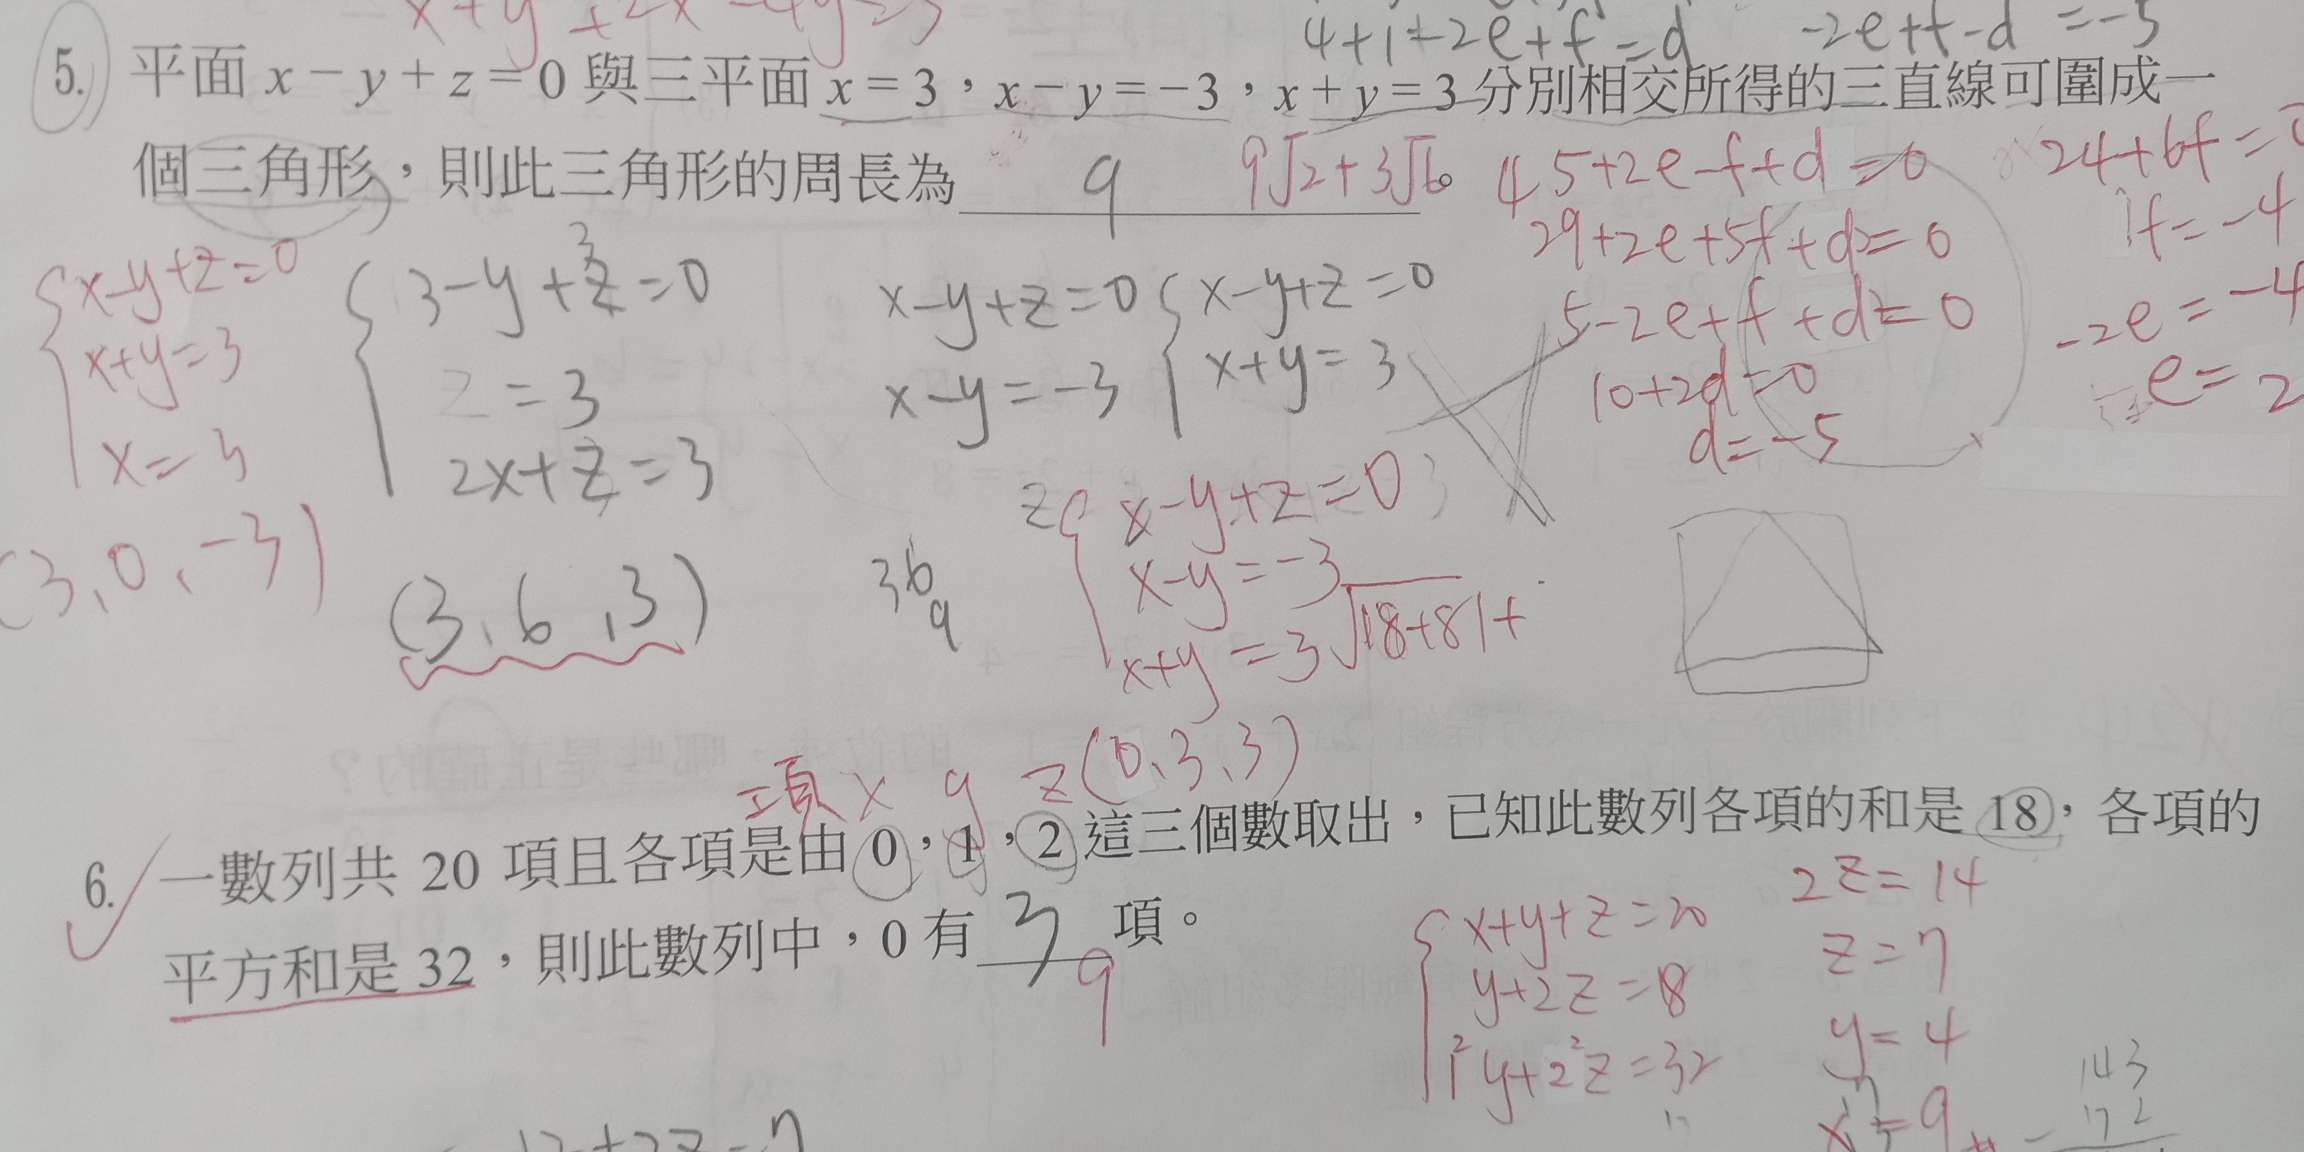 x+y+2x-4y=3
4+1+-2e+f=d
-2e+f-d=-5
5. 平面 x-y+z=0 與三平面 x=3，x-y=-3，x+y=3 分別相交所得的三直線可圍成一
個三角形，則此三角形的周長為 9 9√2+3√6。
45+2e-f+d=0
29+2e+5f+d=0
5-2e+f+d=0
10+2d=0
d=-5
24+6f=0
f=-4
-2e=-4
e=2
x-y+z=0
x+y=3
x=3
(3、0、-3)
3-y+z=0
3
z=3
2x+z=3
(3、6、3)
x-y+z=0
x-y=-3
x-y+z=0
x+y=3
36
9
x-y+z=0
x-y=-3
x+y=3
√18+81+
(0、3、3)
項 x y z
6. 一數列共 20 項且各項是由 0，1，2 這三個數取出，已知此數列各項的和是 18，各項的
平方和是 32，則此數列中，0 有 3 項。
9
x+y+z=20
y+2z=18
1²y+2²z=32
2z=14
z=7
y=4
x=9
143
172